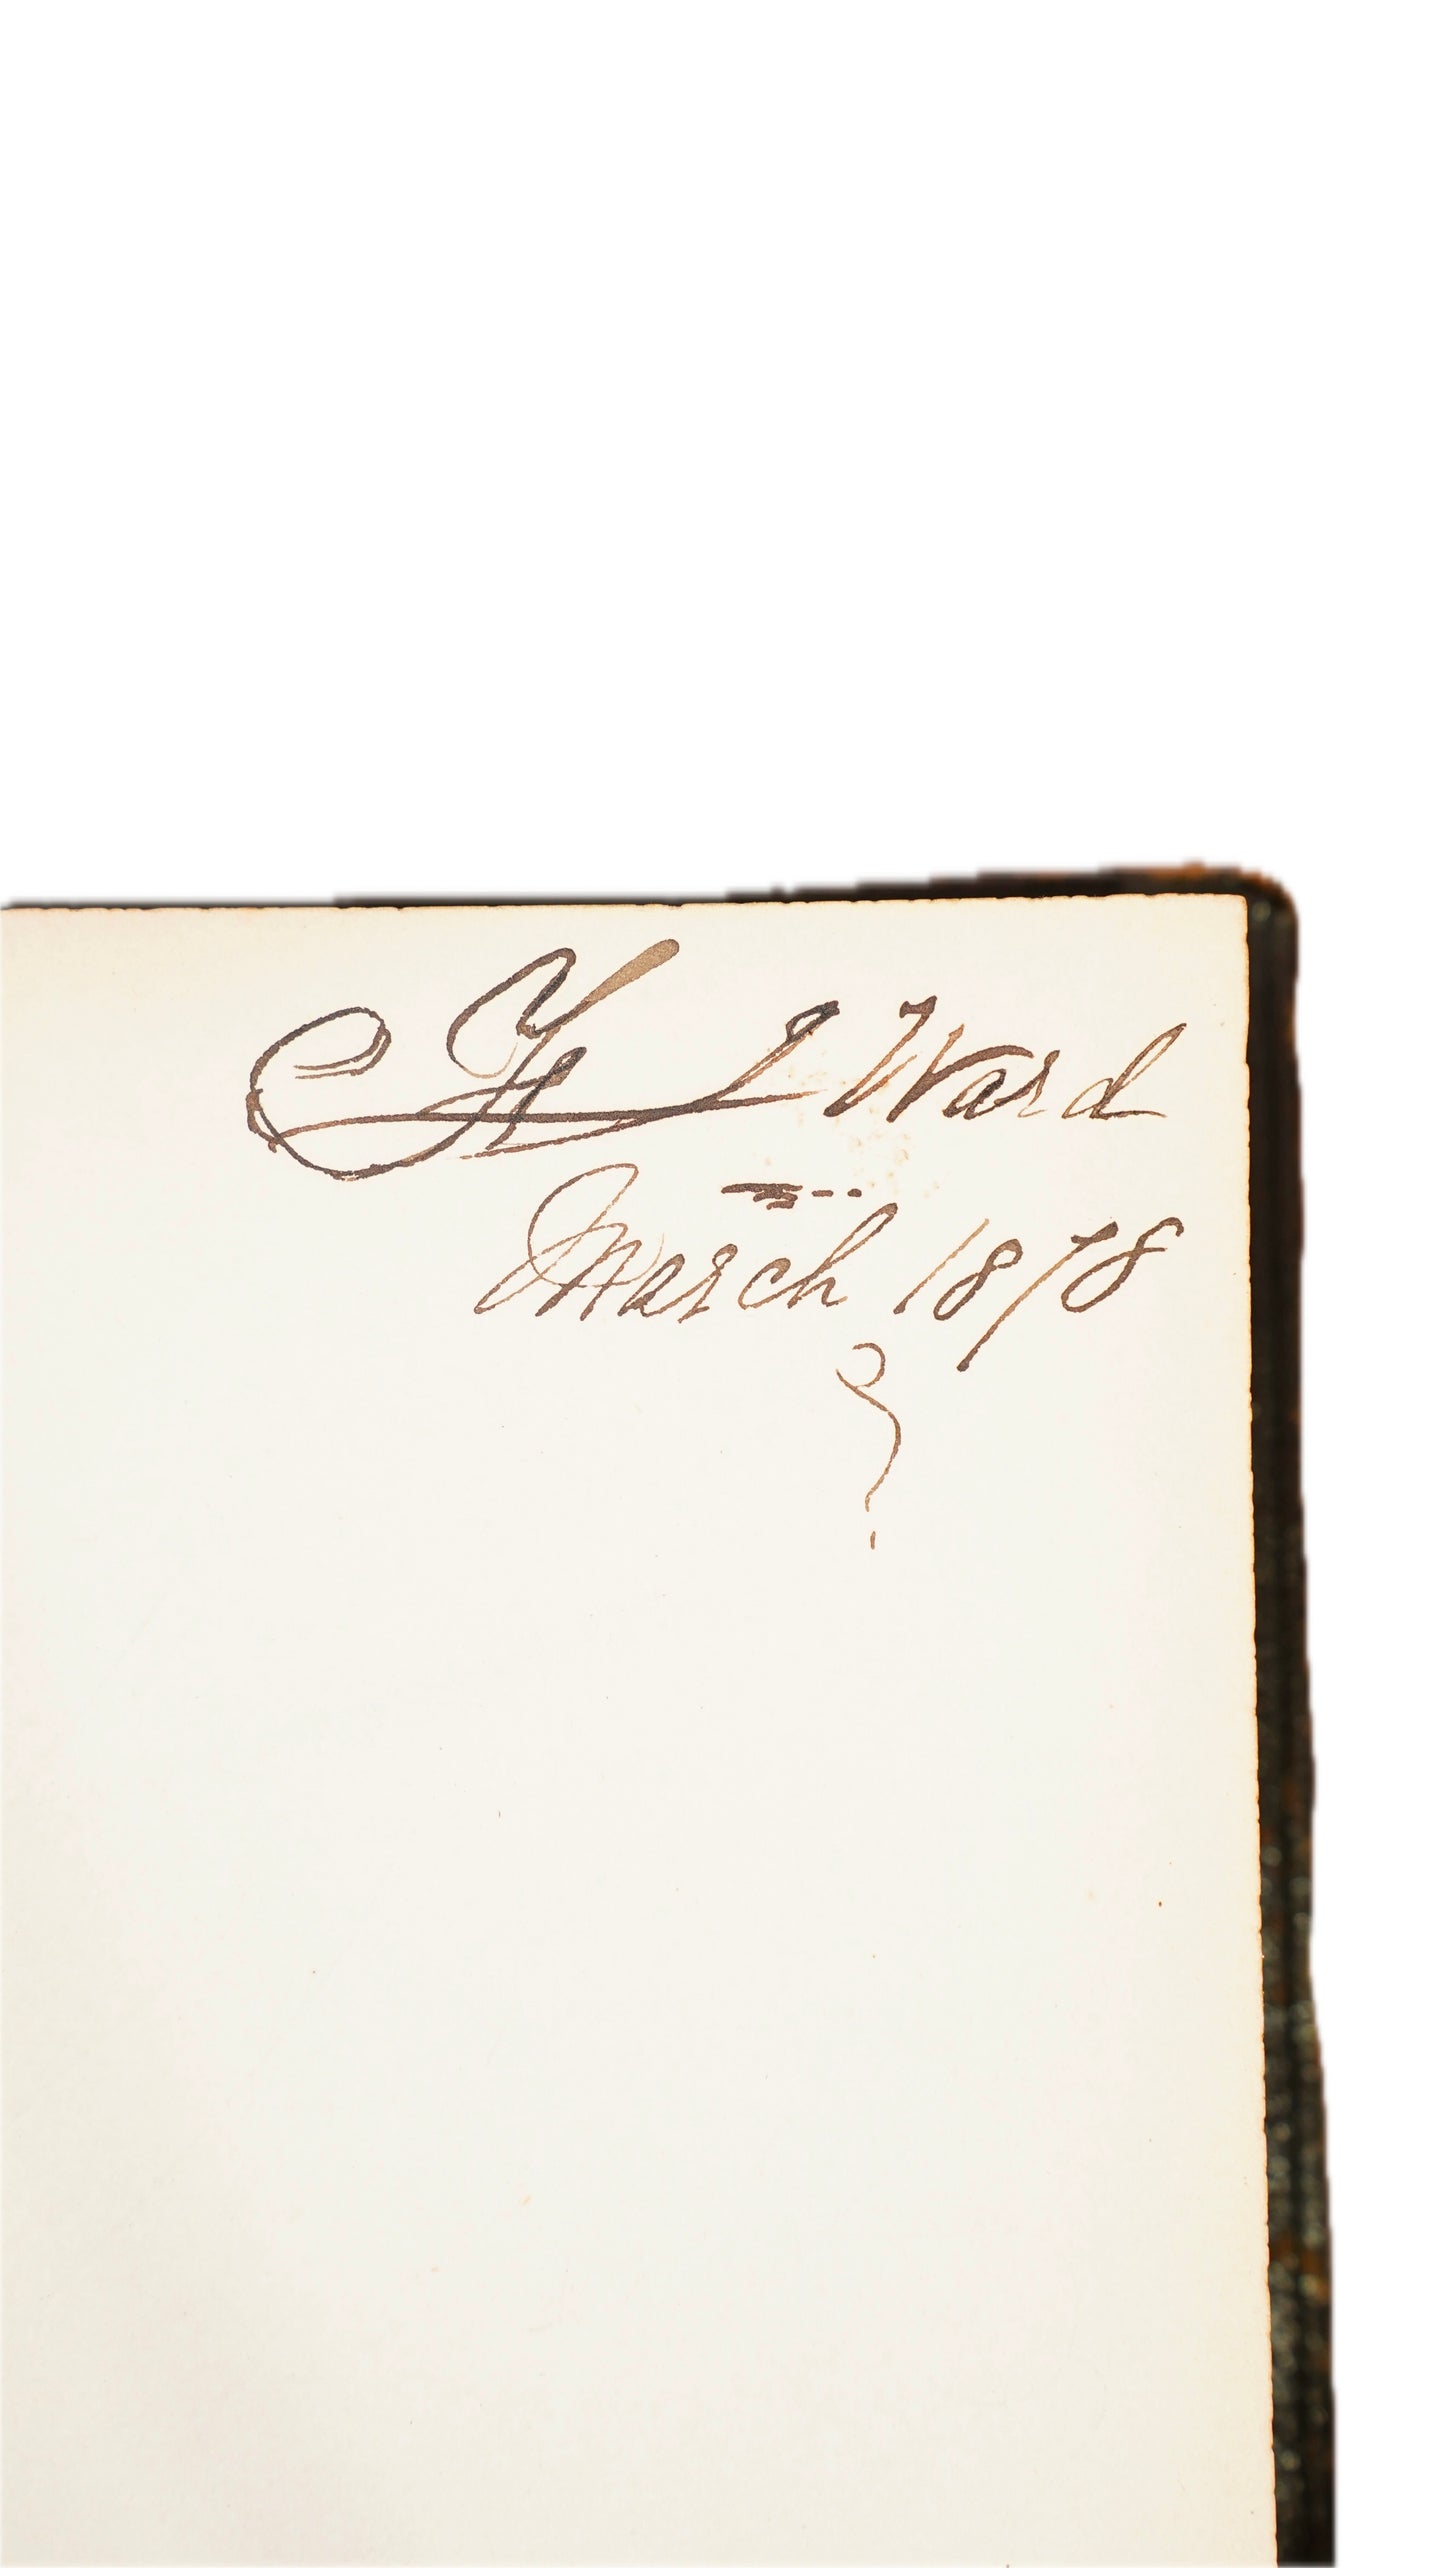 Ward
March 1878